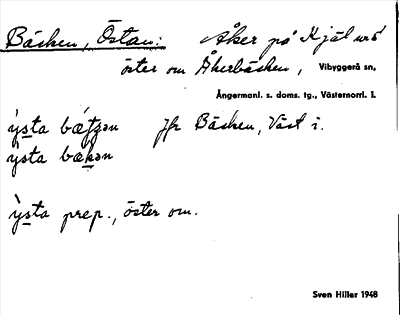 Bäcken, Östan: Åker på Kjäl nrö
öster om Åkerbäcken, Vibyggerå sn,
Ångermanl. s. doms. tg., Västernorrl. l.
ỳsta bætʃən Jfr Bäcken, Väst i.
ỳsta bækən
ỳsta prep., öster om.
Sven Hiller 1948